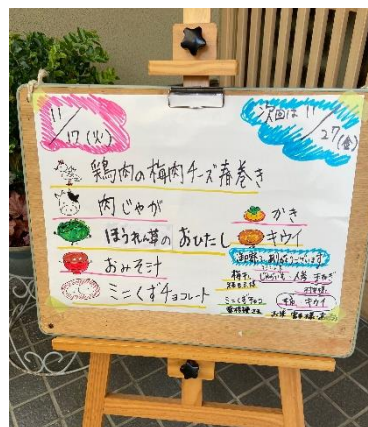 11/17(火)
次回は 11/27(金)
鶏肉の梅肉チーズ春巻き
肉じゃが
ほうれん草のおひたし
おみそ汁
ミニくずチョコレート
かき
キウイ
梅干し じゃがいも 人参
ミニくずチョコ
キウイ
お米